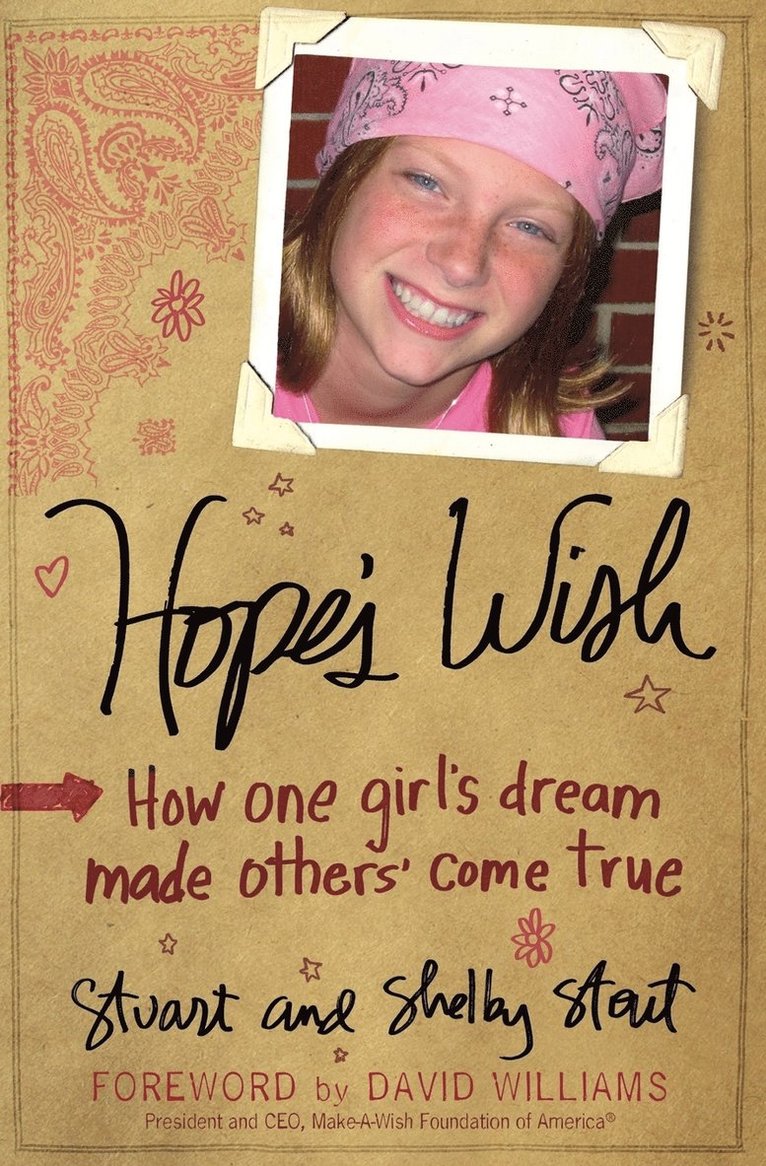 Hope's Wish
How one girl's dream
made others' come true
Stuart and Shelby Stout
FOREWORD by DAVID WILLIAMS
President and CEO, Make-A-Wish Foundation of America®